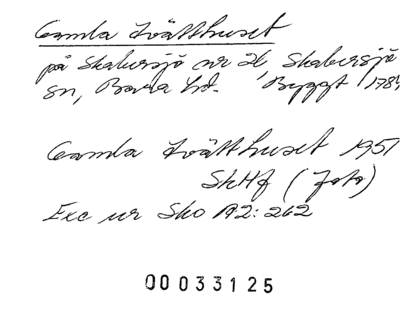 Gamla Tvätthuset
på Skabersjö nr 26, Skabersjö
sn, Bara hd. Byggt 1784
Gamla Tvätthuset 1951
SkHf (foto)
Exc ur Sko A2: 262
00033125